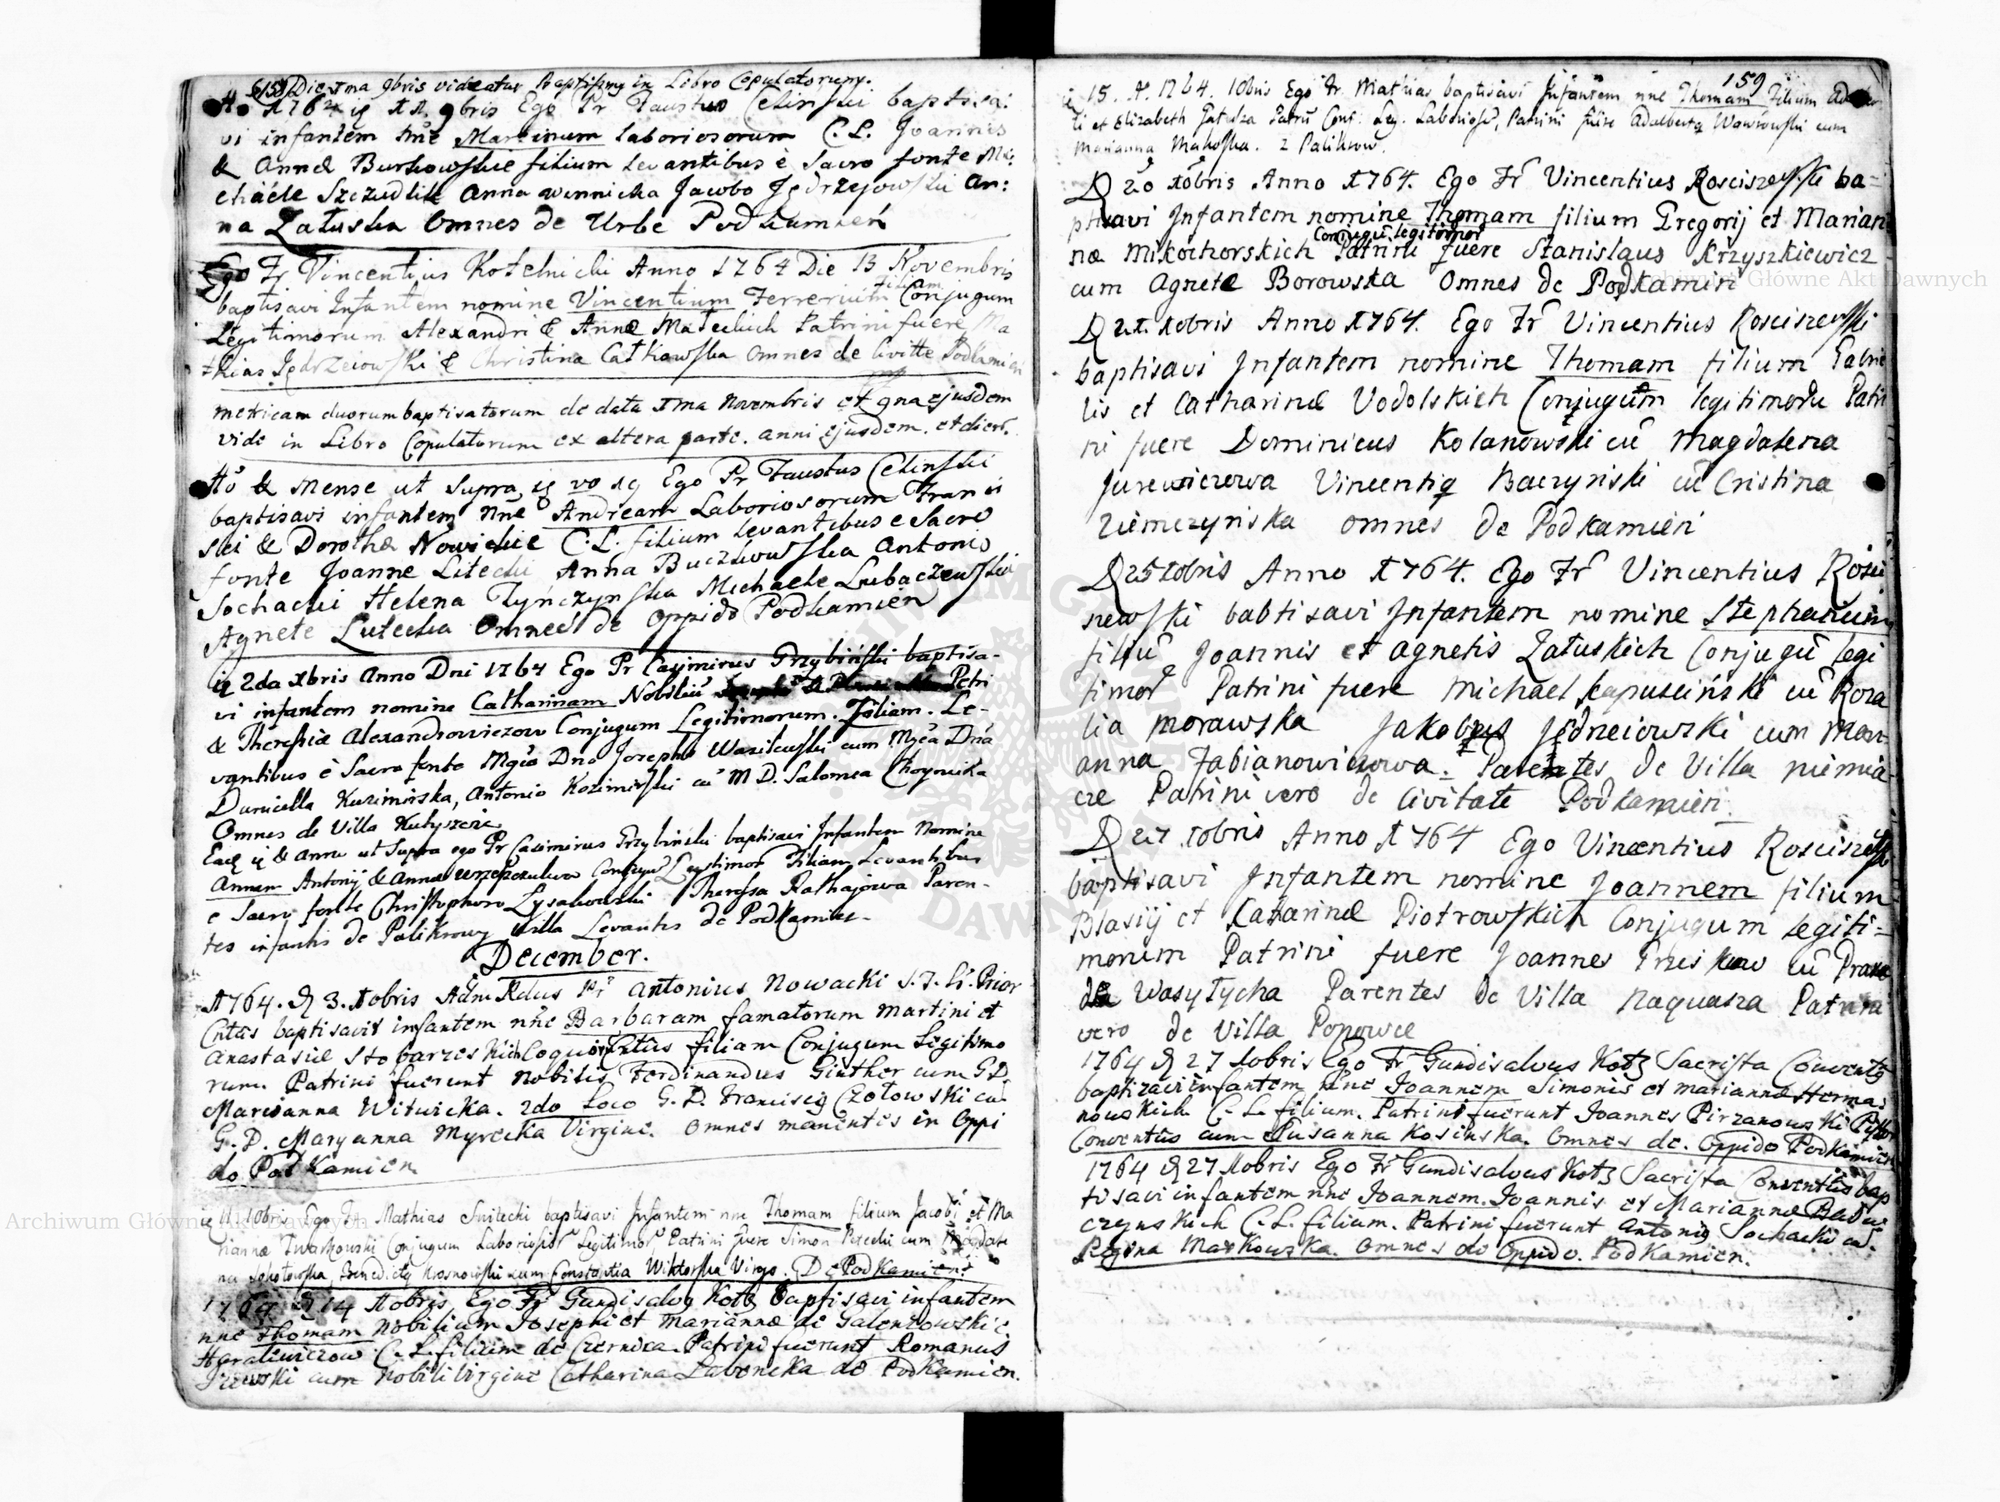 158 Die 1ma 9bris videatur Baptismy in Libro Copulatorum.
A 1764 ig 11. 9bris Ego Fr Faustus Celinski baptisa:
vi infantem Nne Martinum laboriosorum C. L. Joannis
& Annæ Burkowskie filium levantibus è Sacro fonte Mi:
chaele Szczudlik Anna winnicka Jacobo Jędrzejowski An:
na Załuska Omnes de Urbe Podkamień
Ego Fr Vincentius Kotelnicki Anno 1764 Die 13 Novembris
baptisavi Infantem nomine Vincentium Ferrerium filium Conjugum
Legitimorum Alexandri & Annæ Małeckich Patrini fuere Ma
thias Jędrzeiowski & Christina Catkowska Omnes de Civitte Podkamień
metricam duorum baptisatorum de data 1ma Novembris et 9na ejusdem
vide in Libro Copulatorum ex altera parte. anni ejusdem. et diers.
Aõ & Mense ut Supra ig Ego Pr Faustus Celinski
baptisavi infantem Nne Andream Laboriosorum Franci
sci & Dorothæ Nowickie C. L. filium levantibus e Sacro
fonte Joanne Litecki Anna Buczkowska Antonio
Sochacki Helena Tyńczynska Michaele Lubaczewski
Agnete Lutecka Omnes de Oppido Podkamień
ig 2da xbris Anno Dni 1764 Ego Pr Casimirus Grzybiński baptisa-
vi infantem nomine Catharinam Nobiliũ Petri
& Theresiæ Alexandrowiczow Conjugum Legitimorum. Filiam. Le-
vantibus è Sacro fonte Mgco Dno Josepho Wasilewski cum Mgca Dna
Dunicella Kuzimirska, Antonio Kozimirski cũ M D. Salomea Choynicka
Omnes de Villa Kutyszcze
Eadę ig & Anno ut Supra ego Pr Casimirus Grzybinski baptisavi Infantem Nomine
Annam Antonij & Annæ Conjugũ Legitimor Filiam Levantibus
e Sacro fonte Christophoro Łysakowski Theressa Rathajowa Paren-
tes infantis de Palikrowy Villa Levantes de Podkamień-
December.
1764. D 3. Xobris Adm Rdus Pr Antonius Nowacki S. T. L. Prior
Cntūs baptisavit infantem nñe Barbaram famatorum Martini et
Anastasiæ Stobarzeskich Coqui Cntūs filiam Conjugum Legitimo
rum. Patrini fuerunt Nobilis Ferdinandus Ginther cum G.D.
Marianna Witwicka. 2do Loco G. D. Franciscq Czołowski cũ
G. D. Maryanna Myrecka Virgine. Omnes manentes in Oppi
do Pod Kamien
ig 11 10bris Ego Fr Mathias Switecki baptisavi Infantem nne Thomam filium Jacobi et Ma
riannæ Twarkowski Conjugum Laboriosor Legitimor Patrini fuere Simon Rzecki cum Magdale
na Sokołowska, Benedictq Krasnowski cum Constantia Wiktorska Virgo. De Podkamień
1764 D 14 Xobris, Ego Fr Gundisalvq Kotz Baptisavi infantem
nne Thomam Nobilium Josephi et Mariannæ de Galenzowskie
Haraliewiczow C. L. filium de Czernica Patrini fuerunt Romanus
Izewski cum Nobili Virgine Catharina Łaboncka de Podkamien.
159
ig 15. A. 1764. 10bris Ego Fr. Mathias baptisavi Infantem nne Thomam Filium Adalber
ti et Elizabeth Patrũ Conj: Leg. Laborios, Patrini fuere Adalbertq Wawrowski cum
Marianna Makoska. z Palikrow.
D 20 Xobris Anno 1764. Ego Fr Vincentius Rosciszewski ba=
ptisavi Infantem nomine Thomam filium Gregorij et Marian
næ Mikochorskich Conjugũ legitimor Patrini fuere Stanislaus Krzyszkiewicz
cum Agnete Borowska Omnes de Podkamień
D 21. Xobris Anno 1764. Ego Fr Vincentius Rosciszewski
baptisavi Infantem nomine Thomam filium Gabrie
lis et Catharinæ Vodolskich Conjugũm legitimorũ Patri
ni fuere Dominicus Kolanowski cũ Magdalena
Jurewiczowa Vincentiq Baczyński cũ Cristina
Ziemczyńska omnes de Podkamień
D 25 Xobris Anno 1764. Ego Fr Vincentius Rosci
szewski babtisavi Infantem nomine Stephanum
filiũ Joannis et Agnetis Załuskich Conjugũ legi
timor Patrini fuere Michael Kapusciński cũ Roza
lia Morawska Jakobus Jędrzeiowski cum Mari
anna Fabianowiczowa. Parentes de Villa Niemia
cze Patrini vero de Civitate Podkamień.
D 27 Xobris Anno 1764 Ego Vincentius Rosciszewski
baptisavi Infantem nomine Joannem filium
Blasij et Catarinæ Piotrowskich Conjugum legiti=
morum Patrini fuere Joannes cũ
Wasyłycha Parentes de Villa Naquasza Patrini
vero de Villa Popowce
1764 D 27 Xobris Ego Fr Gundisalvus Kotz Sacrista Conventq
baptizavi infantem Nne Joannem Simonis et Mariannæ Herma:
nowskich C. L. filium. Patrini fuerunt Joannes Pirzanowski Pistor
Conventūs cum Susanna Kosinska. Omnes de. Oppido Podkamień
1764 D 27 Xobris Ego Fr Gundisalvus Kotz Sacrista Conventūs bap
tisavi infantem nne Joannem. Joannis et Mariannæ Badu
czynskich C. L. filium. Patrini fuerunt Antoniq Sochacki cũ.
Regina Markowska. Omnes de Oppido. Podkamien.
Archiwum Główne Akt Dawnych
Archiwum Główne Akt Dawnych